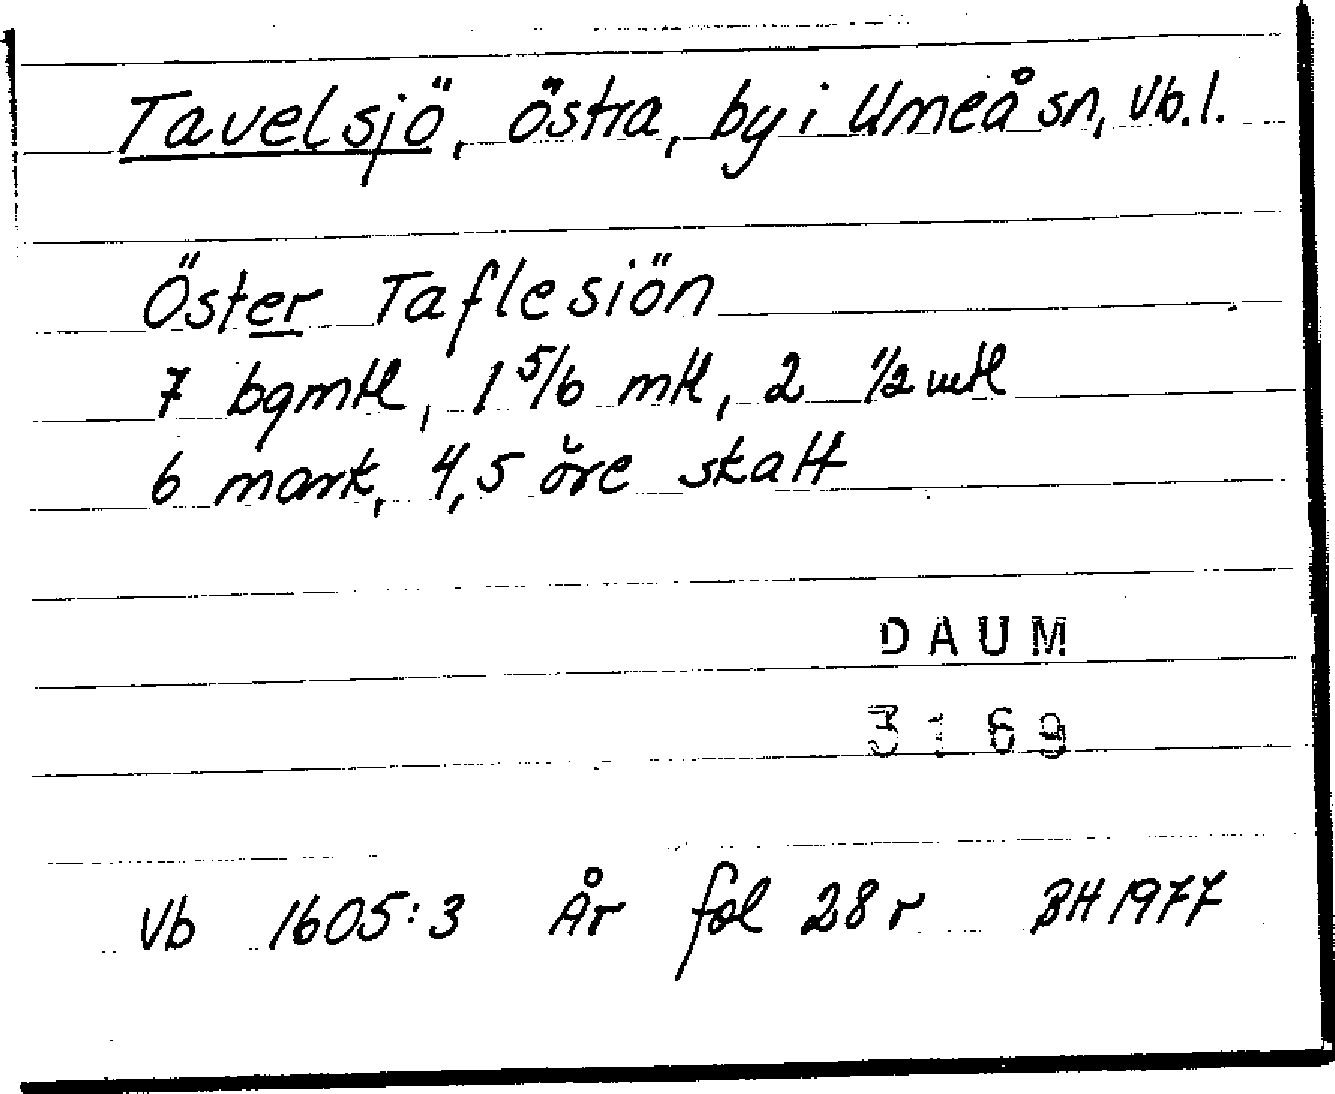 Tavelsjö, östra, by i Umeå sn, Vb.l.
Öster Taflesiön
7 bgmtl, 1 5/6 mtl, 2 1/2 mtl
6 mark, 4,5 öre skatt
DAUM
3169
Vb 1605:3 År fol 28 r BH 1977